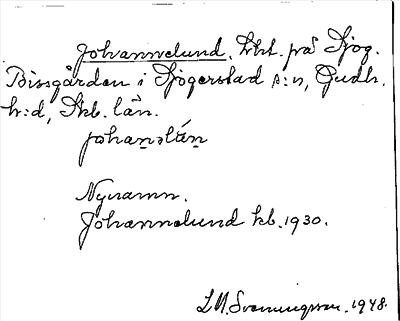 Johannelund. Lht. på Sjög.
Bissgården i Sjögerstad s:n, Gudh.
h:d, Skb. län.
johanəlún
Nynamn.
Johannelund kb. 1930.
L. M. Svenungsson. 1948.